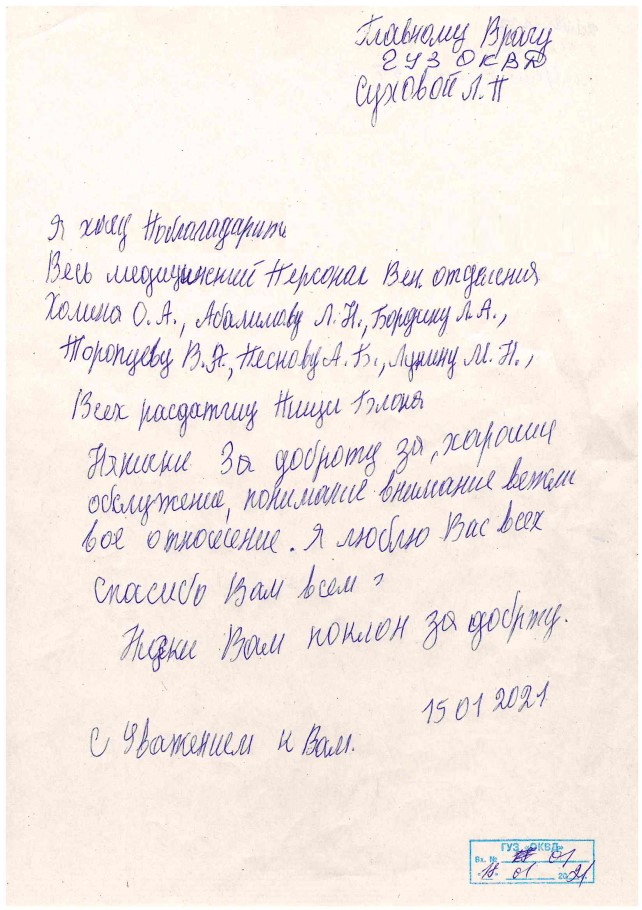 Главному Врачу
ГУЗ ОКВД
Суховой Л.Н
Я хочу Поблагадарить
Весь медицинский Персонал Вен. отделения
Холина О.А., Абалимову Л.Н., Бордину Л.А.,
Торопцеву В.А., Песнову А.Б., Лунину М.Н.,
Всех расдатчиц Пищи Блока
Нянички За доброту за, хароший
обслужение, понимание внимание вежли
вое отношение. Я люблю Вас всех
Спасибо Вам всем
Низки Вам поклон за добрту.
15 01 2021
С Уважением к Вам.
ГУЗ «ОКВД»
Вх. № 01
"18" 01 2021